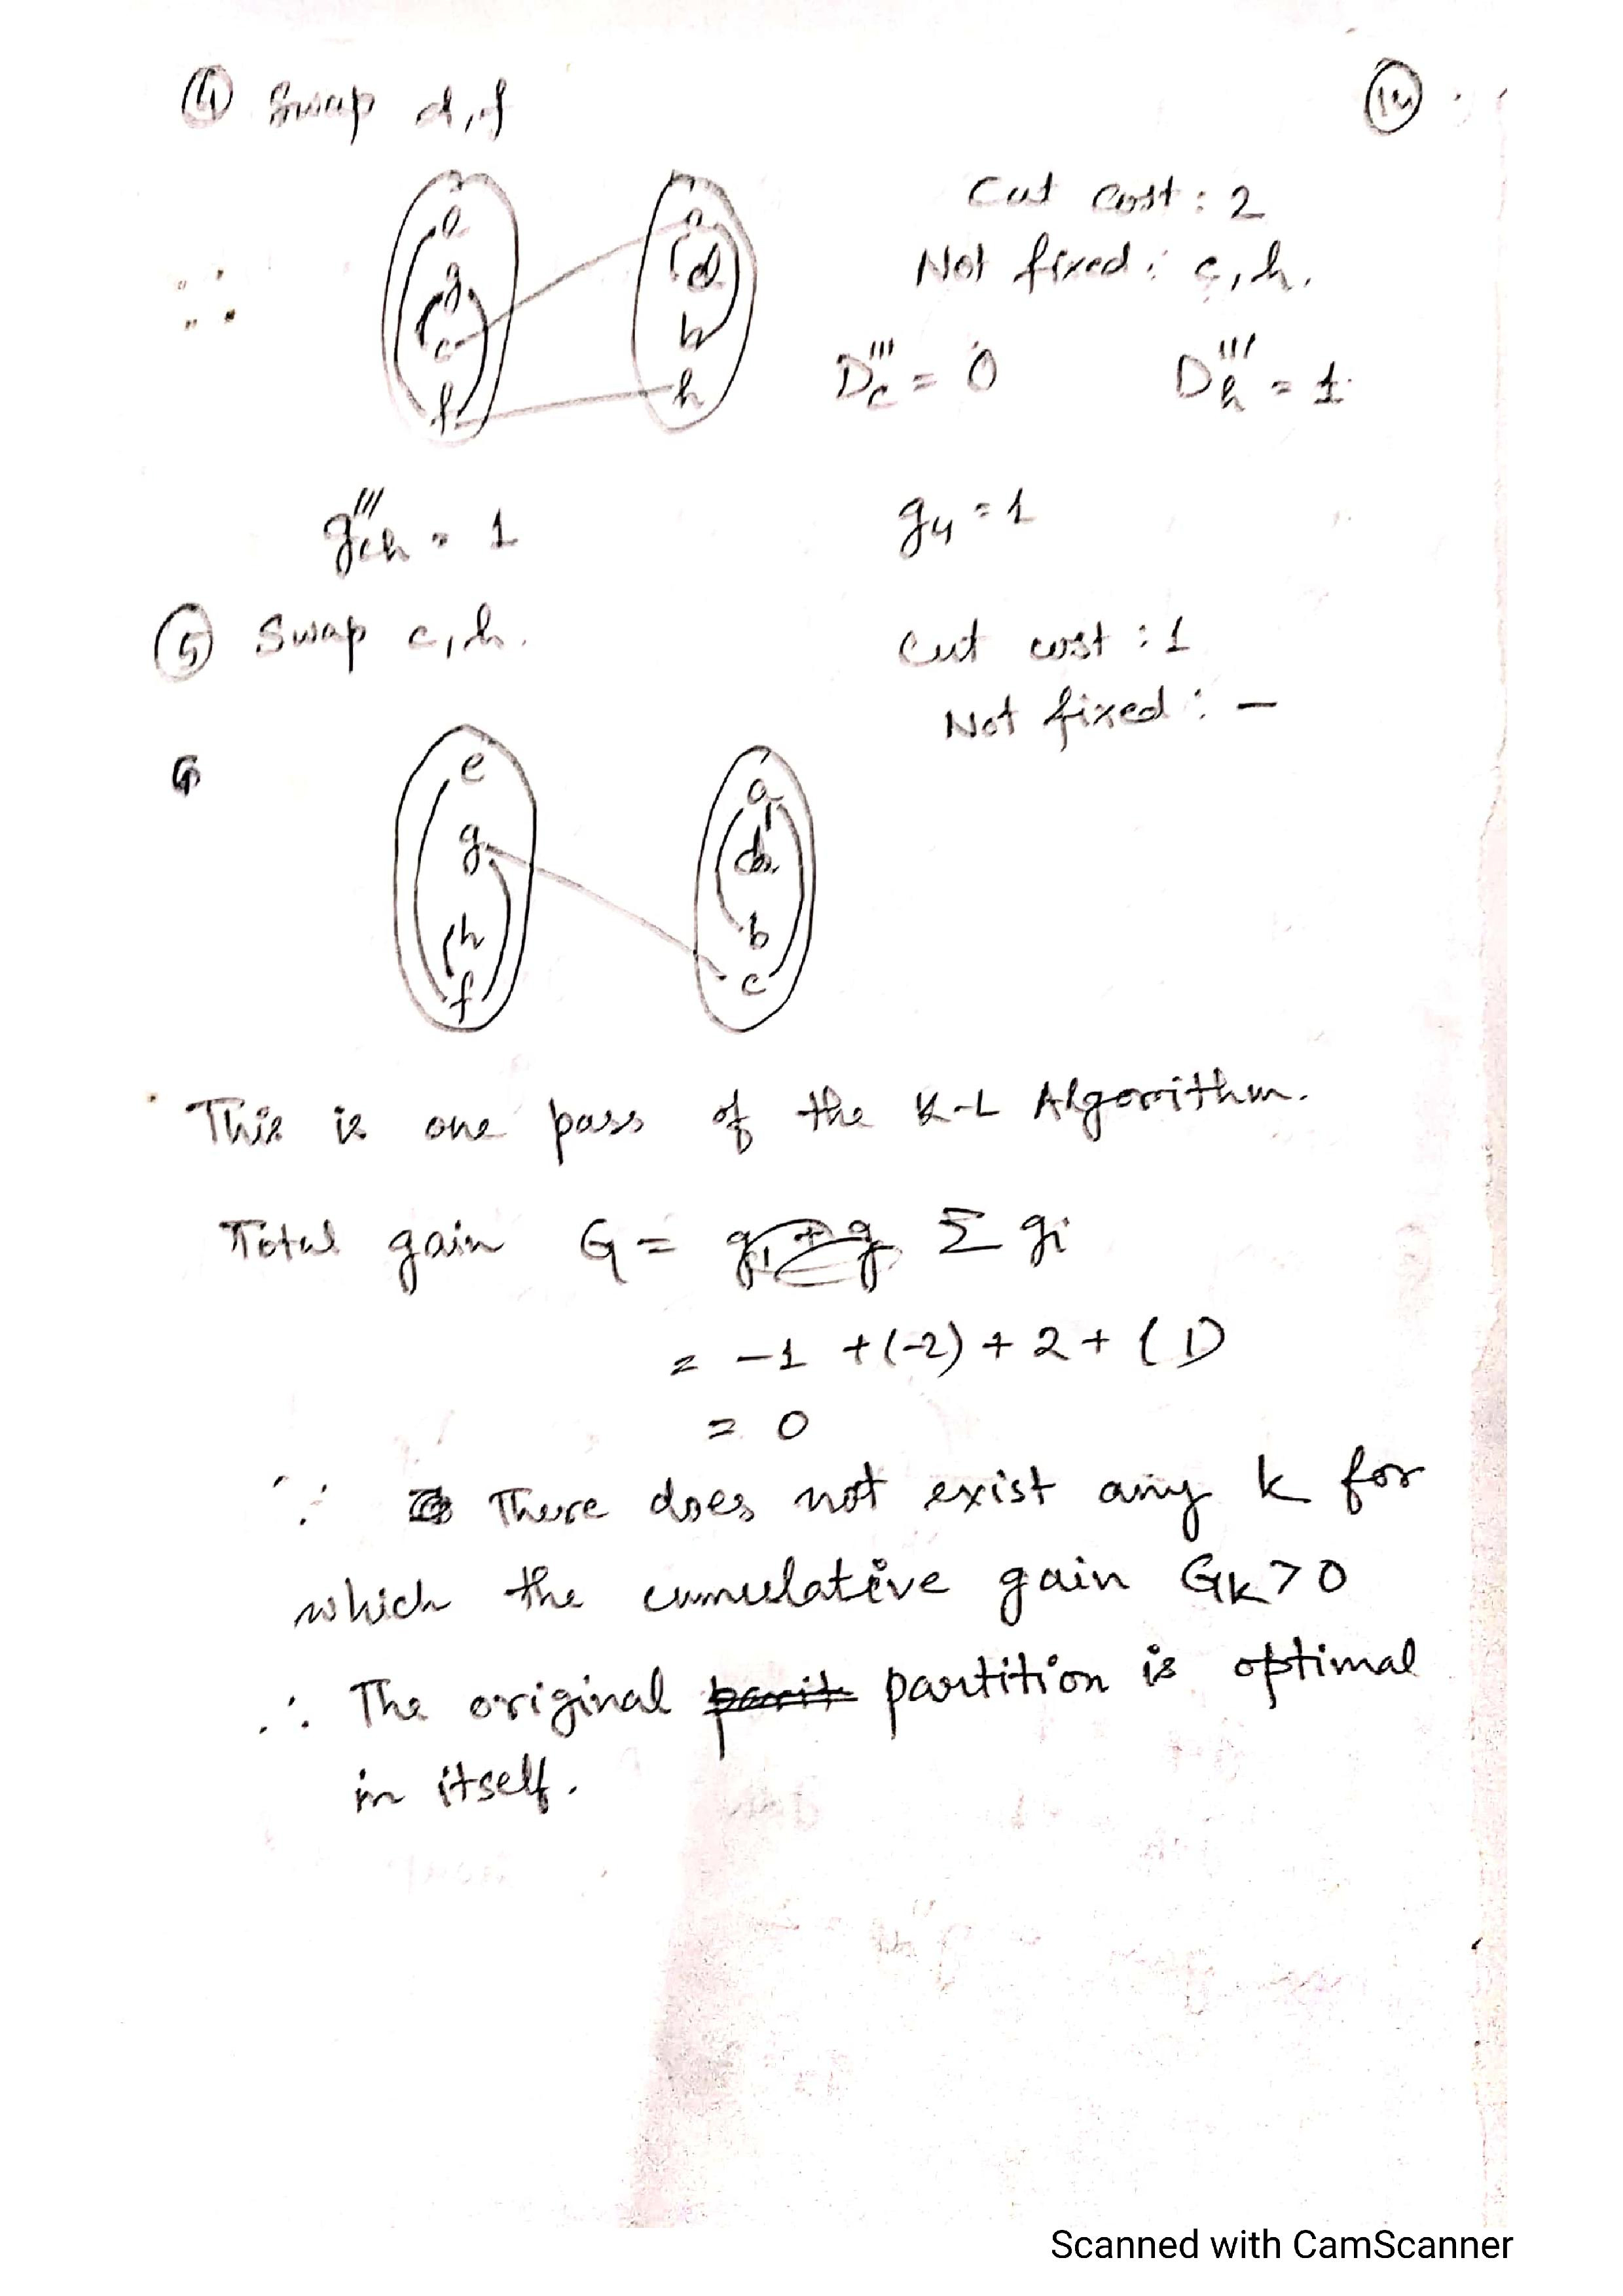 ④ Swap d,f
⑫
e
g
c
f
a
d
b
h
Cut cost : 2
Not fixed : c, h.
D'''c = 0 D'''h = 1
g'''ch = 1 g4 = 1
⑤ Swap c, h.
Cut cost : 1
Not fixed : —
G
e
g
h
f
a
d
b
c
This is one pass of the K-L Algorithm.
Total gain G = Σ gi
= -1 + (-2) + 2 + (1)
= 0
∵ There does not exist any k for
which the cumulative gain Gk > 0
∴ The original partition is optimal
in itself.
Scanned with CamScanner